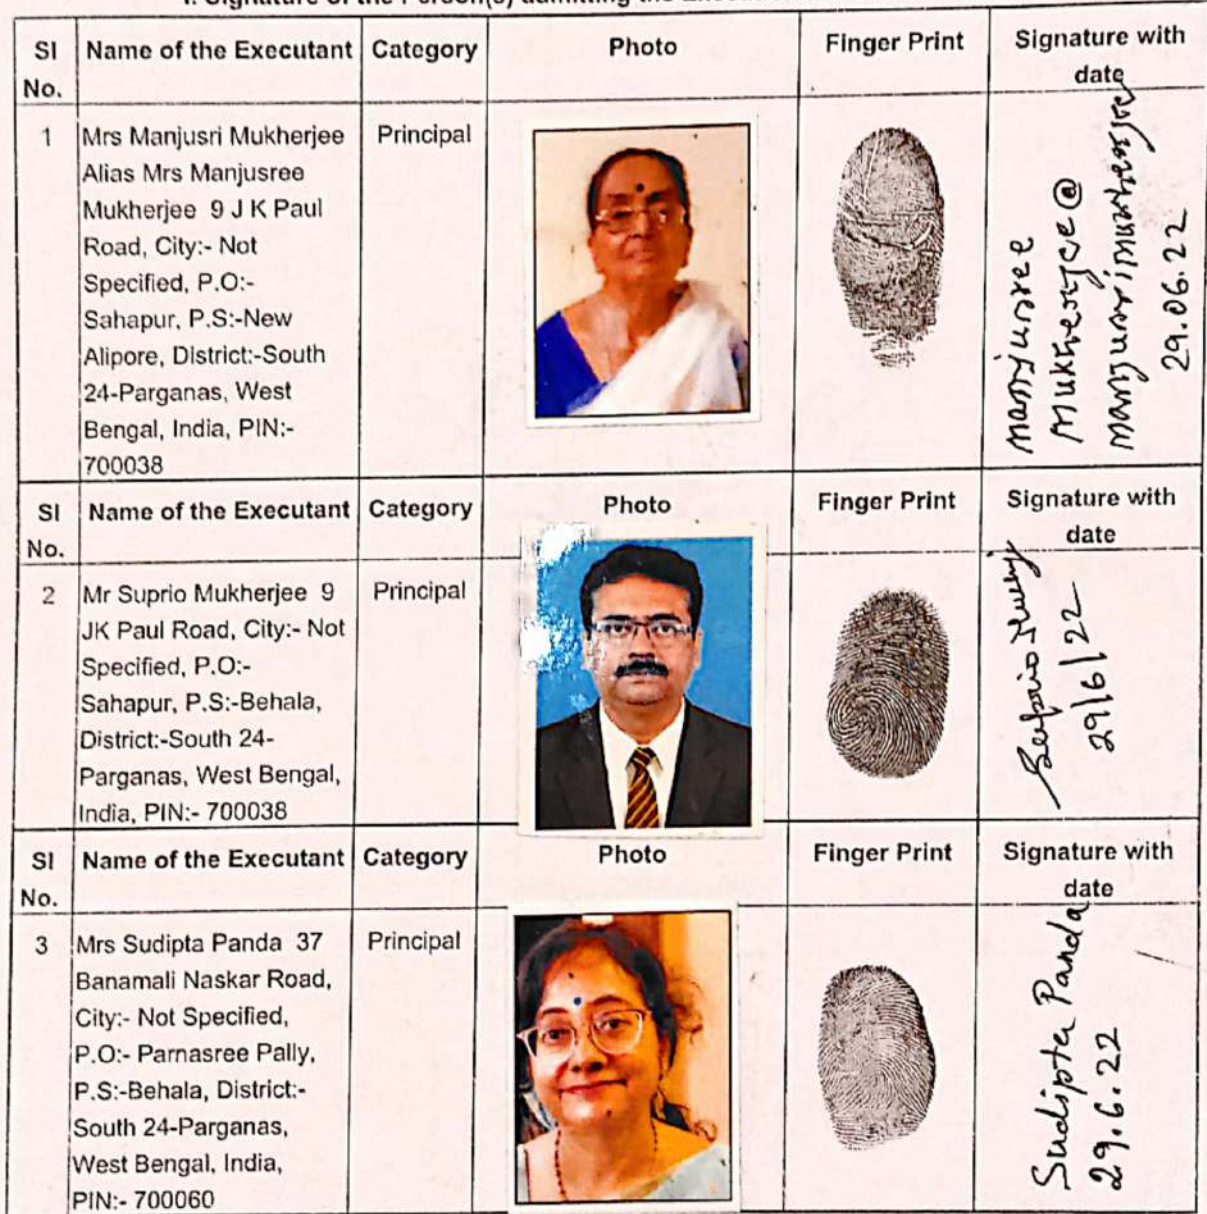 I. Signature of the Person(s) admitting the Execution
Sl No. Name of the Executant Category Photo Finger Print Signature with date
1 Mrs Manjusri Mukherjee Principal
Alias Mrs Manjusree
Mukherjee 9 J K Paul
Road, City:- Not
Specified, P.O:-
Sahapur, P.S:-New
Alipore, District:-South
24-Parganas, West
Bengal, India, PIN:-
700038
manjusree
Mukherjee @
manjusri mukherjee
29.06.22
Sl No. Name of the Executant Category Photo Finger Print Signature with date
2 Mr Suprio Mukherjee 9 Principal
JK Paul Road, City:- Not
Specified, P.O:-
Sahapur, P.S:-Behala,
District:-South 24-
Parganas, West Bengal,
India, PIN:- 700038
Suprio
29/6/22
Sl No. Name of the Executant Category Photo Finger Print Signature with date
3 Mrs Sudipta Panda 37 Principal
Banamali Naskar Road,
City:- Not Specified,
P.O:- Parnasree Pally,
P.S:-Behala, District:-
South 24-Parganas,
West Bengal, India,
PIN:- 700060
Sudipta Panda
29.6.22